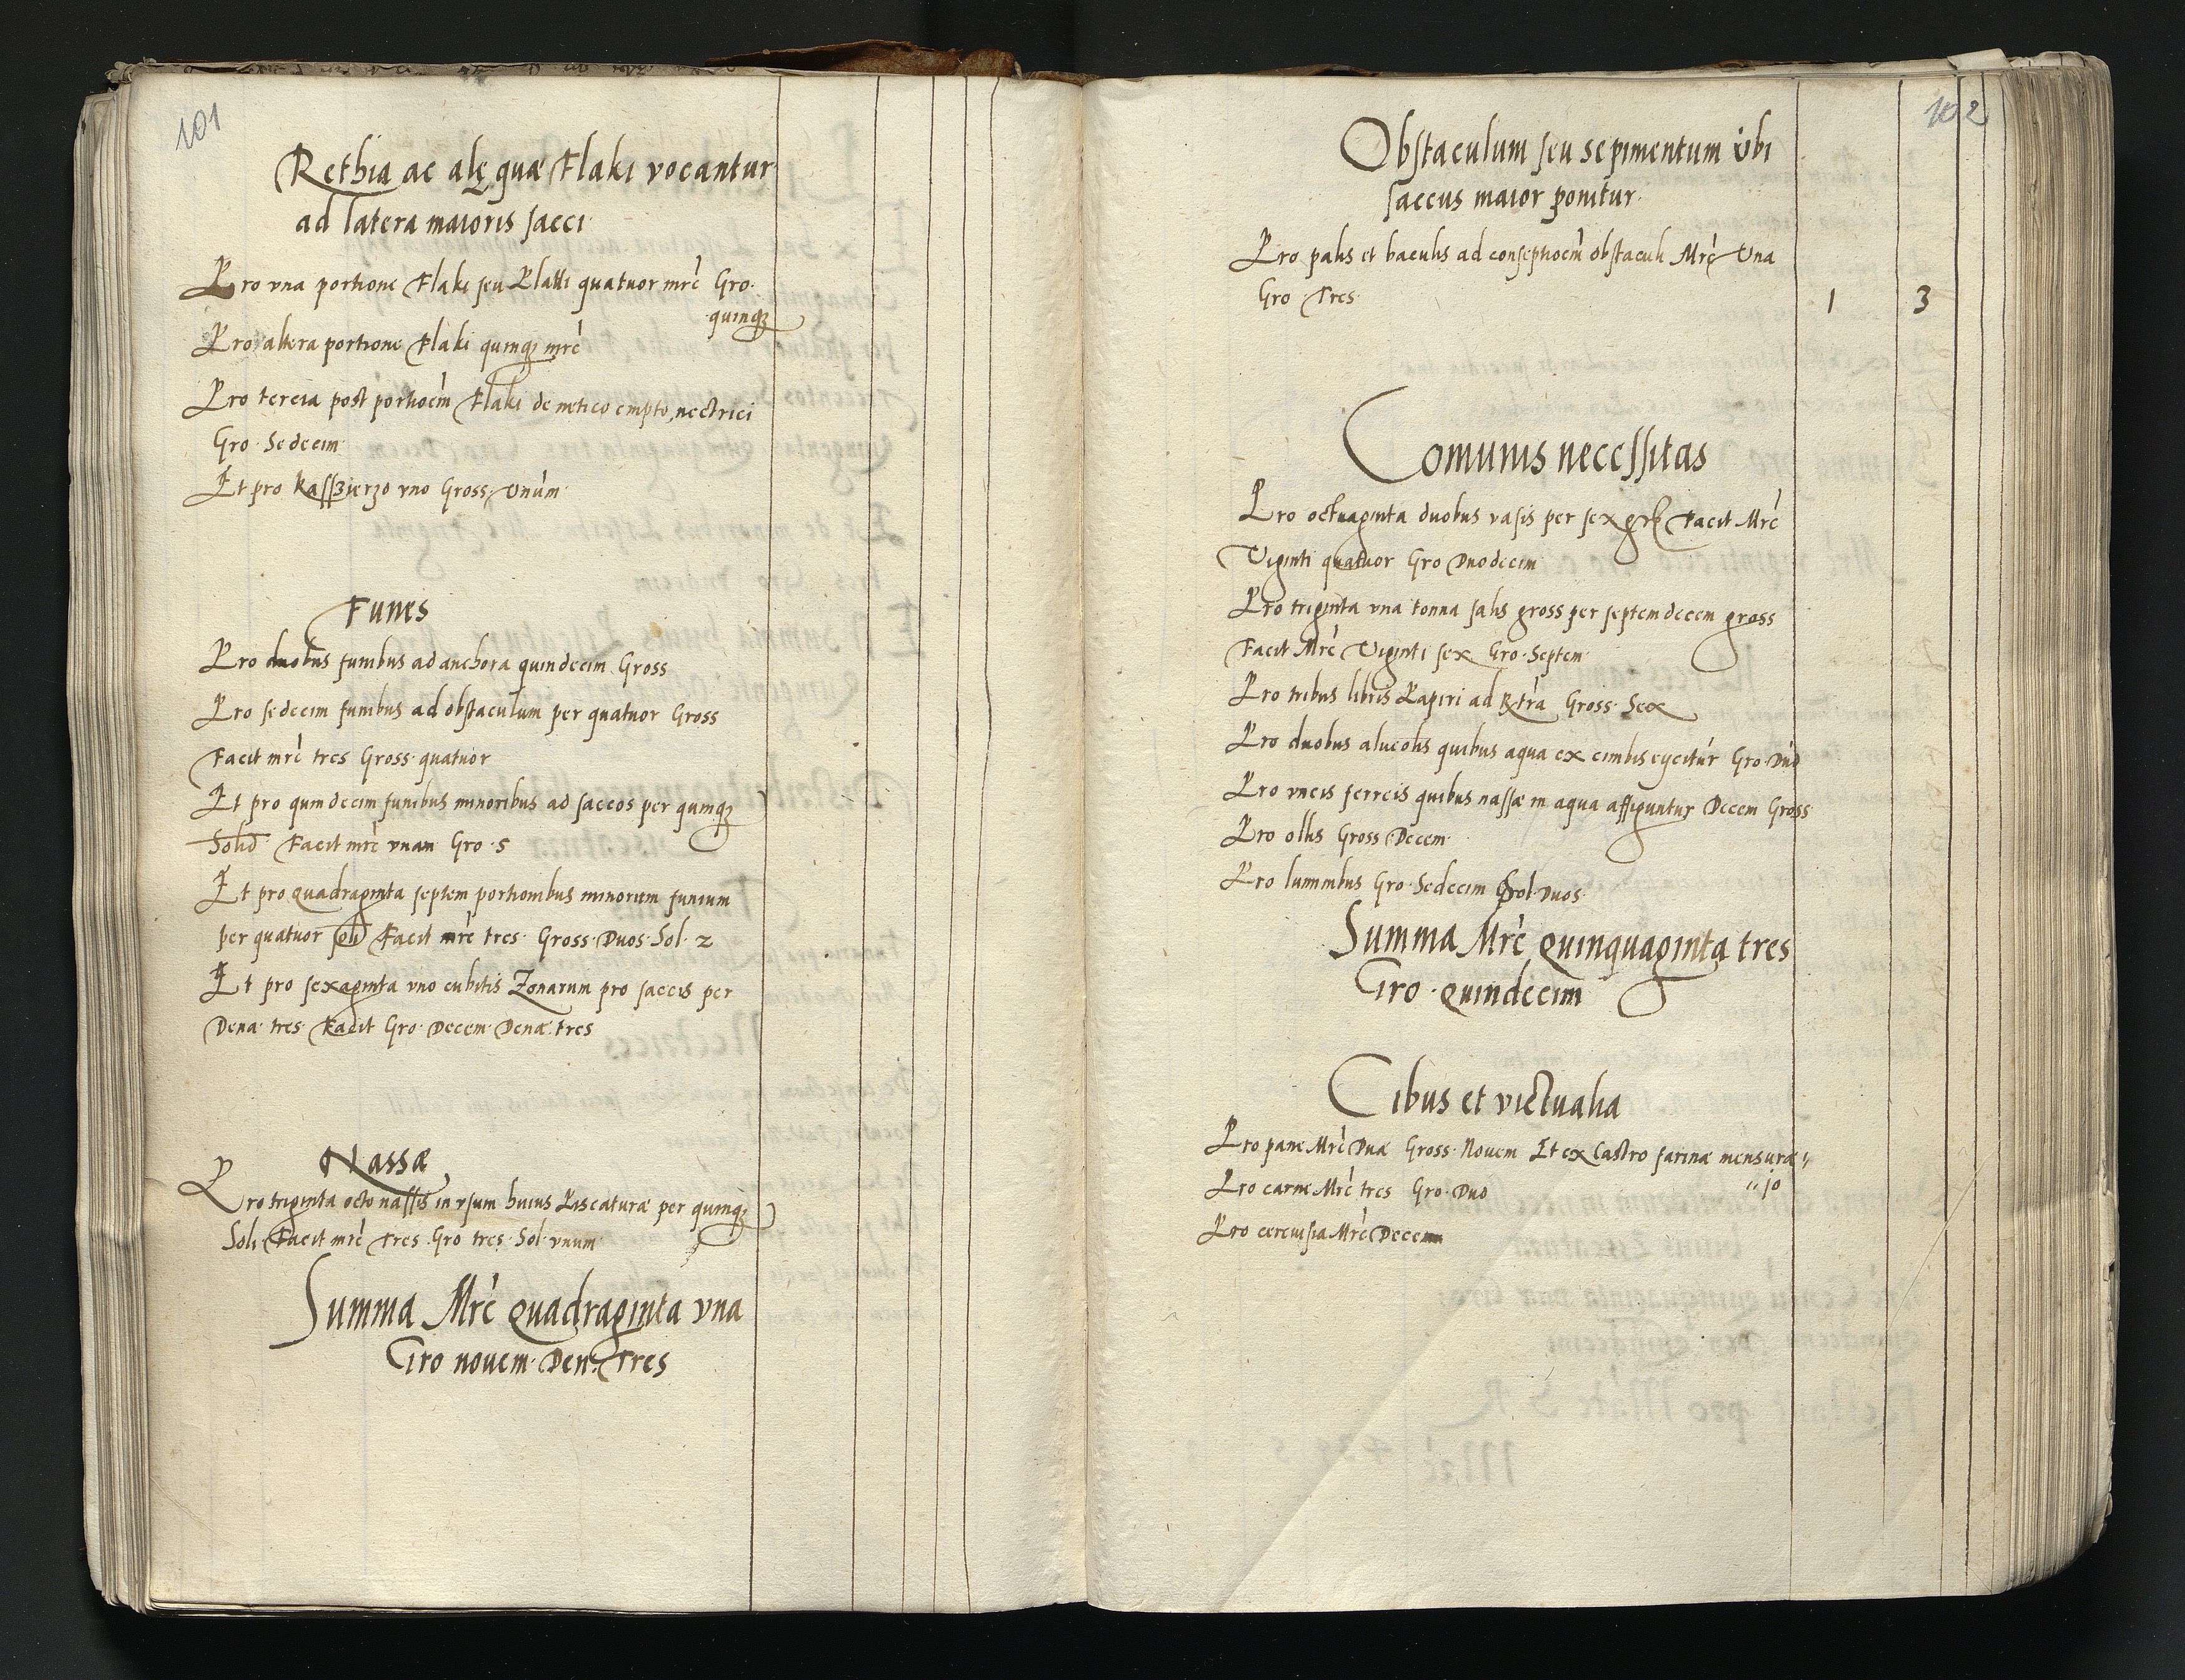 101
Rethia ac alę quæ Flaki vocantur
ad latera maioris sacci
Pro vna portione Flaki seu Plaski quatuor mrc̃ Gro.
quinqꝫ
Pro altera portione Flaki quinqꝫ mrc̃
Pro tercia post portioem̃ Flaki de netico empto, nectrici
Gro. Sedecim
Et pro kasszierzo vno Gross. Vnum
Funes
Pro duobus funibus ad anchora quindecim Gross
Pro sedecim funibus ad obstaculum per quatuor Gross
Facit mrc̃ tres Gross. quatuor
Et pro quindecim funibus minoribus ad saccos per quinqꝫ
Solid Facit mrc̃ vnam Gro. 5
Et pro quadraginta septem portionibus minorum funium
per quatuor soli Facit mrc̃ tres. Gross. Duos. Sol. 2
Et pro sexaginta vno cubitis Zonarum pro saccis per
Dena. tres. Facit Gro. Decem. Denæ. tres
Nassæ
Pro triginta octo nassis in vsum huius Piscaturæ per quinqꝫ
Soli. Facit mrc̃ Tres. Gro tres. Sol. vnum
Summa Mrc̃ Quadraginta vna
Gro nouem. Den. Tres
102
Obstaculum seu sepimentum vbi
saccus maior ponitur.
Pro palis et baculis ad conseptioem̃ obstaculi Mrc̃ Vna
Gro. Tres. 1 3
Comunis necessitas
Pro octuaginta duobus vasis per sex gr Facit Mrc̃
Viginti quatuor Gro Duodecim
Pro triginta vna tonna salis gross per septemdecem gross
Facit Mrc̃ Viginti sex Gro. Septem
Pro tribus libris Papiri ad Rtra Gross. Sex
Pro duobus alueolis quibus aqua ex cimbis eycitur Gro. Duo
Pro vncis ferreis quibus nassæ in aqua affiguntur Decem Gross
Pro ollis Gross. Decem.
Pro luminibus Gro. Sedecim Sol. Duos.
Summa Mrc̃ Quinquaginta tres
Gro. Quindecim
Cibus et victualia
Pro pane Mrc̃ Duæ Gross. Nouem Et ex Castro farinæ mensuræ
Pro carne Mrc̃ tres Gro. Duo 10
Pro cereuisia Mrc̃ Decem